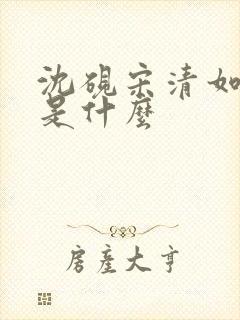 沈砚宋清如
是什麼
房産大亨